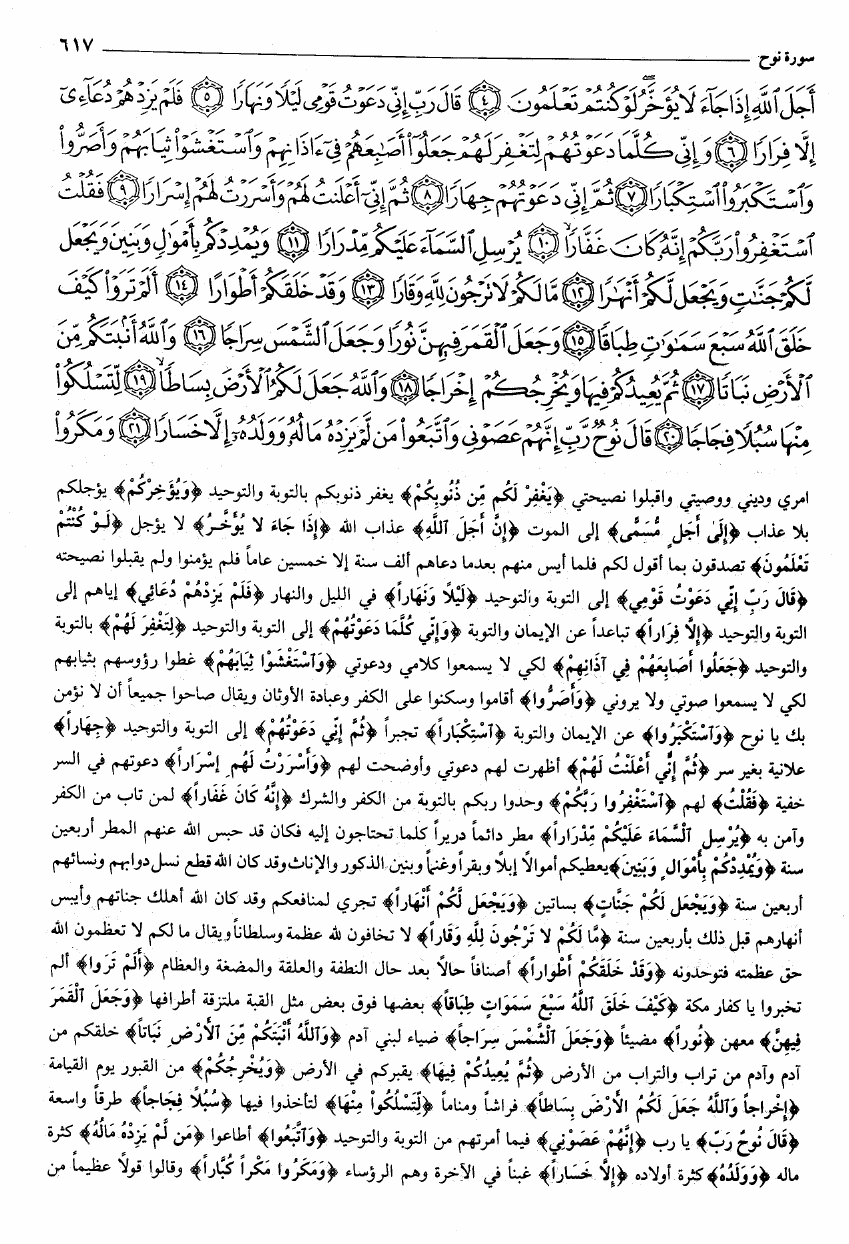 سورة نوح ٦١٧
أَجَلَ ٱللَّهِ إِذَا جَآءَ لَا يُؤَخَّرُ لَوْ كُنتُمْ تَعْلَمُونَ ٤ قَالَ رَبِّ إِنِّي دَعَوْتُ قَوْمِي لَيْلًا وَنَهَارًا ٥ فَلَمْ يَزِدْهُمْ دُعَآءِىٓ
إِلَّا فِرَارًا ٦ وَإِنِّي كُلَّمَا دَعَوْتُهُمْ لِتَغْفِرَ لَهُمْ جَعَلُوٓا۟ أَصَٰبِعَهُمْ فِىٓ ءَاذَانِهِمْ وَٱسْتَغْشَوْا۟ ثِيَابَهُمْ وَأَصَرُّوا۟
وَٱسْتَكْبَرُوا۟ ٱسْتِكْبَارًا ٧ ثُمَّ إِنِّي دَعَوْتُهُمْ جِهَارًا ٨ ثُمَّ إِنِّىٓ أَعْلَنتُ لَهُمْ وَأَسْرَرْتُ لَهُمْ إِسْرَارًا ٩ فَقُلْتُ
ٱسْتَغْفِرُوا۟ رَبَّكُمْ إِنَّهُۥ كَانَ غَفَّارًا ١٠ يُرْسِلِ ٱلسَّمَآءَ عَلَيْكُم مِّدْرَارًا ١١ وَيُمْدِدْكُم بِأَمْوَٰلٍ وَبَنِينَ وَيَجْعَل
لَّكُمْ جَنَّٰتٍ وَيَجْعَل لَّكُمْ أَنْهَٰرًا ١٢ مَّا لَكُمْ لَا تَرْجُونَ لِلَّهِ وَقَارًا ١٣ وَقَدْ خَلَقَكُمْ أَطْوَارًا ١٤ أَلَمْ تَرَوْا۟ كَيْفَ
خَلَقَ ٱللَّهُ سَبْعَ سَمَٰوَٰتٍ طِبَاقًا ١٥ وَجَعَلَ ٱلْقَمَرَ فِيهِنَّ نُورًا وَجَعَلَ ٱلشَّمْسَ سِرَاجًا ١٦ وَٱللَّهُ أَنۢبَتَكُم مِّنَ
ٱلْأَرْضِ نَبَاتًا ١٧ ثُمَّ يُعِيدُكُمْ فِيهَا وَيُخْرِجُكُمْ إِخْرَاجًا ١٨ وَٱللَّهُ جَعَلَ لَكُمُ ٱلْأَرْضَ بِسَاطًا ١٩ لِّتَسْلُكُوا۟
مِنْهَا سُبُلًا فِجَاجًا ٢٠ قَالَ نُوحٌ رَّبِّ إِنَّهُمْ عَصَوْنِى وَٱتَّبَعُوا۟ مَن لَّمْ يَزِدْهُ مَالُهُۥ وَوَلَدُهُۥٓ إِلَّا خَسَارًا ٢١ وَمَكَرُوا۟
امري وديني ووصيتي واقبلوا نصيحتي ﴿يَغْفِرْ لَكُم مِّن ذُنُوبِكُمْ﴾ يغفر ذنوبكم بالتوبة والتوحيد ﴿وَيُؤَخِرْكُمْ﴾ يؤجلكم
بلا عذاب ﴿إِلَى أَجَلٍ مُّسَمًّى﴾ إلى الموت ﴿إِنَّ أَجَلَ ٱللَّهِ﴾ عذاب الله ﴿إِذَا جَاءَ لَا يُؤَخَّرُ﴾ لا يؤجل ﴿لَوْ كُنْتُمْ
تَعْلَمُونَ﴾ تصدقون بما أقول لكم فلما أيس منهم بعدما دعاهم ألف سنة إلا خمسين عاماً فلم يؤمنوا ولم يقبلوا نصيحته
﴿قَالَ رَبِّ إِنِّي دَعَوْتُ قَوْمِي﴾ إلى التوبة والتوحيد ﴿لَيْلاً وَنَهَاراً﴾ في الليل والنهار ﴿فَلَمْ يَزِدْهُمْ دُعَائِي﴾ إياهم إلى
التوبة والتوحيد ﴿إِلَّا فِرَاراً﴾ تباعداً عن الإيمان والتوبة ﴿وَإِنِّي كُلَّمَا دَعَوْتُهُمْ﴾ إلى التوبة والتوحيد ﴿لِتَغْفِرَ لَهُمْ﴾ بالتوبة
والتوحيد ﴿جَعَلُوا أَصَابِعَهُمْ فِي آذَانِهِمْ﴾ لكي لا يسمعوا كلامي ودعوتي ﴿وَٱسْتَغْشَوْا ثِيَابَهُمْ﴾ غطوا رؤوسهم بثيابهم
لكي لا يسمعوا صوتي ولا يروني ﴿وَأَصَرُّوا﴾ أقاموا وسكنوا على الكفر وعبادة الأوثان ويقال صاحوا جميعاً أن لا نؤمن
بك يا نوح ﴿وَٱسْتَكْبَرُوا﴾ عن الإيمان والتوبة ﴿ٱسْتِكْبَاراً﴾ تجبراً ﴿ثُمَّ إِنِّي دَعَوْتُهُمْ﴾ إلى التوبة والتوحيد ﴿جِهَاراً﴾
علانية بغير سر ﴿ثُمَّ إِنِّي أَعْلَنْتُ لَهُمْ﴾ أظهرت لهم دعوتي وأوضحت لهم ﴿وَأَسْرَرْتُ لَهُم إِسْرَاراً﴾ دعوتهم في السر
خفية ﴿فَقُلْتُ﴾ لهم ﴿ٱسْتَغْفِرُوا رَبَّكُمْ﴾ وحدوا ربكم بالتوبة من الكفر والشرك ﴿إِنَّهُ كَانَ غَفَّاراً﴾ لمن تاب من الكفر
وآمن به ﴿يُرْسِلِ ٱلسَّمَاءَ عَلَيْكُمْ مِّدْرَاراً﴾ مطر دائماً دريراً كلما تحتاجون إليه فكان قد حبس الله عنهم المطر أربعين
سنة ﴿وَيُمْدِدْكُمْ بِأَمْوَالٍ وَبَنِينَ﴾ يعطيكم أموالاً إبلاً وبقراً وغنماً وبنين الذكور والإناث وقد كان الله قطع نسل دوابهم ونسائهم
أربعين سنة ﴿وَيَجْعَل لَكُمْ جَنَّاتٍ﴾ بساتين ﴿وَيَجْعَل لَّكُمْ أَنْهَاراً﴾ تجري لمنافعكم وقد كان الله أهلك جناتهم وأيبس
أنهارهم قبل ذلك بأربعين سنة ﴿مَّا لَكُمْ لَا تَرْجُونَ لِلَّهِ وَقَاراً﴾ لا تخافون لله عظمة وسلطاناً ويقال ما لكم لا تعظمون الله
حق عظمته فتوحدونه ﴿وَقَدْ خَلَقَكُمْ أَطْوَاراً﴾ أصنافاً حالاً بعد حال النطفة والعلقة والمضغة والعظام ﴿أَلَمْ تَرَوا﴾ ألم
تخبروا يا كفار مكة ﴿كَيْفَ خَلَقَ ٱللَّهُ سَبْعَ سَمَوَاتٍ طِبَاقاً﴾ بعضها فوق بعض مثل القبة ملتزقة أطرافها ﴿وَجَعَلَ ٱلْقَمَرَ
فِيهِنَّ﴾ معهن ﴿نُوراً﴾ مضيئاً ﴿وَجَعَلَ ٱلشَّمْسَ سِرَاجاً﴾ ضياء لبني آدم ﴿وَٱللَّهُ أَنْبَتَكُمْ مِّنَ ٱلْأَرْضِ نَبَاتاً﴾ خلقكم من
آدم وآدم من تراب والتراب من الأرض ﴿ثُمَّ يُعِيدُكُمْ فِيهَا﴾ يقبركم في الأرض ﴿وَيُخْرِجُكُمْ﴾ من القبور يوم القيامة
﴿إِخْرَاجاً وَٱللَّهُ جَعَلَ لَكُمُ الأَرْضَ بِسَاطاً﴾ فراشاً ومناماً ﴿لِّتَسْلُكُواْ مِنْهَا﴾ لتأخذوا فيها ﴿سُبُلاً فِجَاجاً﴾ طرقاً واسعة
﴿قَالَ نُوحٌ رَبِّ﴾ يا رب ﴿إِنَّهُمْ عَصَوْنِي﴾ فيما أمرتهم من التوبة والتوحيد ﴿وَٱتَّبَعُوا﴾ أطاعوا ﴿مَن لَّمْ يَزِدْهُ مَالُهُ﴾ كثرة
ماله ﴿وَوَلَدُهُ﴾ كثرة أولاده ﴿إِلَّا خَسَاراً﴾ غبناً في الآخرة وهم الرؤساء ﴿وَمَكَرُوا مَكْراً كُبَّاراً﴾ وقالوا قولاً عظيماً من